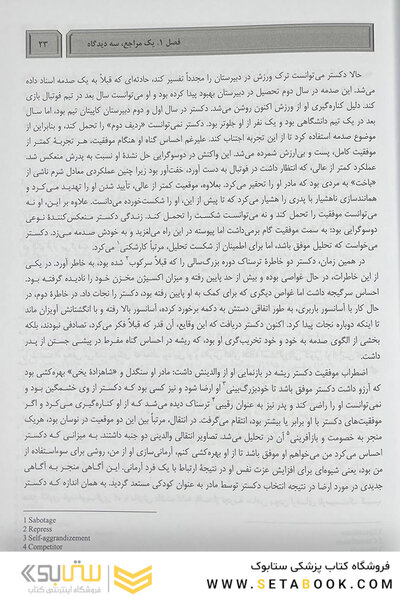 فصل ۱. یک مراجع، سه دیدگاه
۲۳
حالا دکستر می‌توانست ترک ورزش در دبیرستان را مجدداً تفسیر کند، حادثه‌ای که قبلاً به یک صدمه اسناد داده
می‌شد. این صدمه در سال دوم تحصیل در دبیرستان بهبود پیدا کرده بود و او می‌توانست سال بعد در تیم فوتبال بازی
کند. دلیل کناره‌گیری او از ورزش اکنون روشن می‌شد. دکستر در سال اول و دوم دبیرستان کاپیتان تیم بود، اما سال
بعد در یک تیم دانشگاهی بود و یک نفر از او جلوتر بود. دکستر نمی‌توانست «ردیف دوم» را تحمل کند، و بنابراین از
موضوع صدمه استفاده کرد تا از این تجربه اجتناب کند. علیرغم احساس گناه او هنگام موفقیت، هر تجربهٔ کمتر از
موفقیت کامل، پست و بی‌ارزش شمرده می‌شد. این واکنش در دوسوگرایی حل نشدهٔ او نسبت به پدرش منعکس شد.
عملکرد کمتر از عالی، که انتظار داشت در فوتبال به دست آورد، خفت‌آور بود زیرا چنین عملکردی معادل شرم ناشی از
«باخت» به مردی بود که مادر او را تحقیر می‌کرد. بعلاوه، موقعیت کمتر از عالی، تأیید شدن او را تهدید می‌کرد و
همانندسازی ناهشیار با پدری را هشیار می‌کرد که تا پیش از این، او را شکست‌خورده می‌دانست. علاوه بر این، او نه
می‌توانست موفقیت را تحمل کند و نه می‌توانست شکست را تحمل کند. زندگی دکستر منعکس‌کنندهٔ نوعی
دوسوگرایی بود؛ به سمت موفقیت گام برمی‌داشت اما پیوسته در این راه می‌لغزید و به خودش صدمه می‌زد. دکستر
می‌خواست که تحلیل موفق باشد، اما برای اطمینان از شکست تحلیل، مرتباً کارشکنی۱ می‌کرد.
در همین زمان، دکستر دو خاطرهٔ ترسناک دوره بزرگ‌سالی را که قبلاً سرکوب۲ شده بود، به خاطر آورد. در یکی
از این خاطرات، در حال غواصی بوده و بیش از حد پایین رفته و میزان اکسیژن مخزن خود را نادیده گرفته بود.
احساس سرگیجه داشت اما غواص دیگری که برای کمک به او پایین رفته بود، دکستر را نجات داد. در خاطرهٔ دوم، در
حال کار با آسانسور باربری، به طور اتفاقی دستش به دکمه برخورد کرده، آسانسور بالا رفته و با انگشتانش آویزان ماند
تا اینکه دوباره نجات پیدا کرد. اکنون دکستر دریافت که این وقایع، آن قدر که قبلاً فکر می‌کرد، تصادفی نبودند، بلکه
بخشی از الگوی صدمه به خود و خود تخریب‌گری او بود، که ریشه در احساس گناه مفرط در پیشی جستن از پدر
داشت.
اضطراب موفقیت دکستر ریشه در بازنمایی او از والدینش داشت؛ مادر او سنگدل و «شاهزادهٔ یخی» بهره‌کشی بود
که آرزو داشت دکستر موفق باشد تا خودبزرگ‌بینی۳ او ارضا شود و نیز کسی بود که دکستر از وی خشمگین بود و
نمی‌توانست او را راضی کند و پدر نیز به عنوان رقیبی۴ ترسناک دیده می‌شد که از او کناره‌گیری می‌کرد و اگر
موفقیت‌های دکستر با او برابر یا بیشتر بود، انتقام می‌گرفت. در انتقال، مرتباً بین این دو موقعیت در نوسان بود، هریک
منجر به خصومت و بازآفرینی۵ آن در تحلیل می‌شد. تصاویر انتقالی والدینی دو جنبه داشتند. میزانی که دکستر
احساس می‌کرد من می‌خواهم او موفق باشد تا از او بهره‌کشی کنم، آرمانی‌سازی او از من، روشی برای سوءاستفاده از
من بود، یعنی شیوه‌ای برای افزایش عزت نفس او در نتیجهٔ ارتباط با یک فرد آرمانی. این آگاهی منجر به آگاهی
جدیدی در مورد ارضا در نتیجه انتخاب دکستر توسط مادر به عنوان کودکی مستعد گردید. به همان اندازه که دکستر
1 Sabotage
2 Repress
3 Self-aggrandizement
4 Competitor
فروشگاه کتاب پزشکی ستابوک
WWW.SETABOOK.COM
ستابوک
فروشگاه اینترنتی کتاب